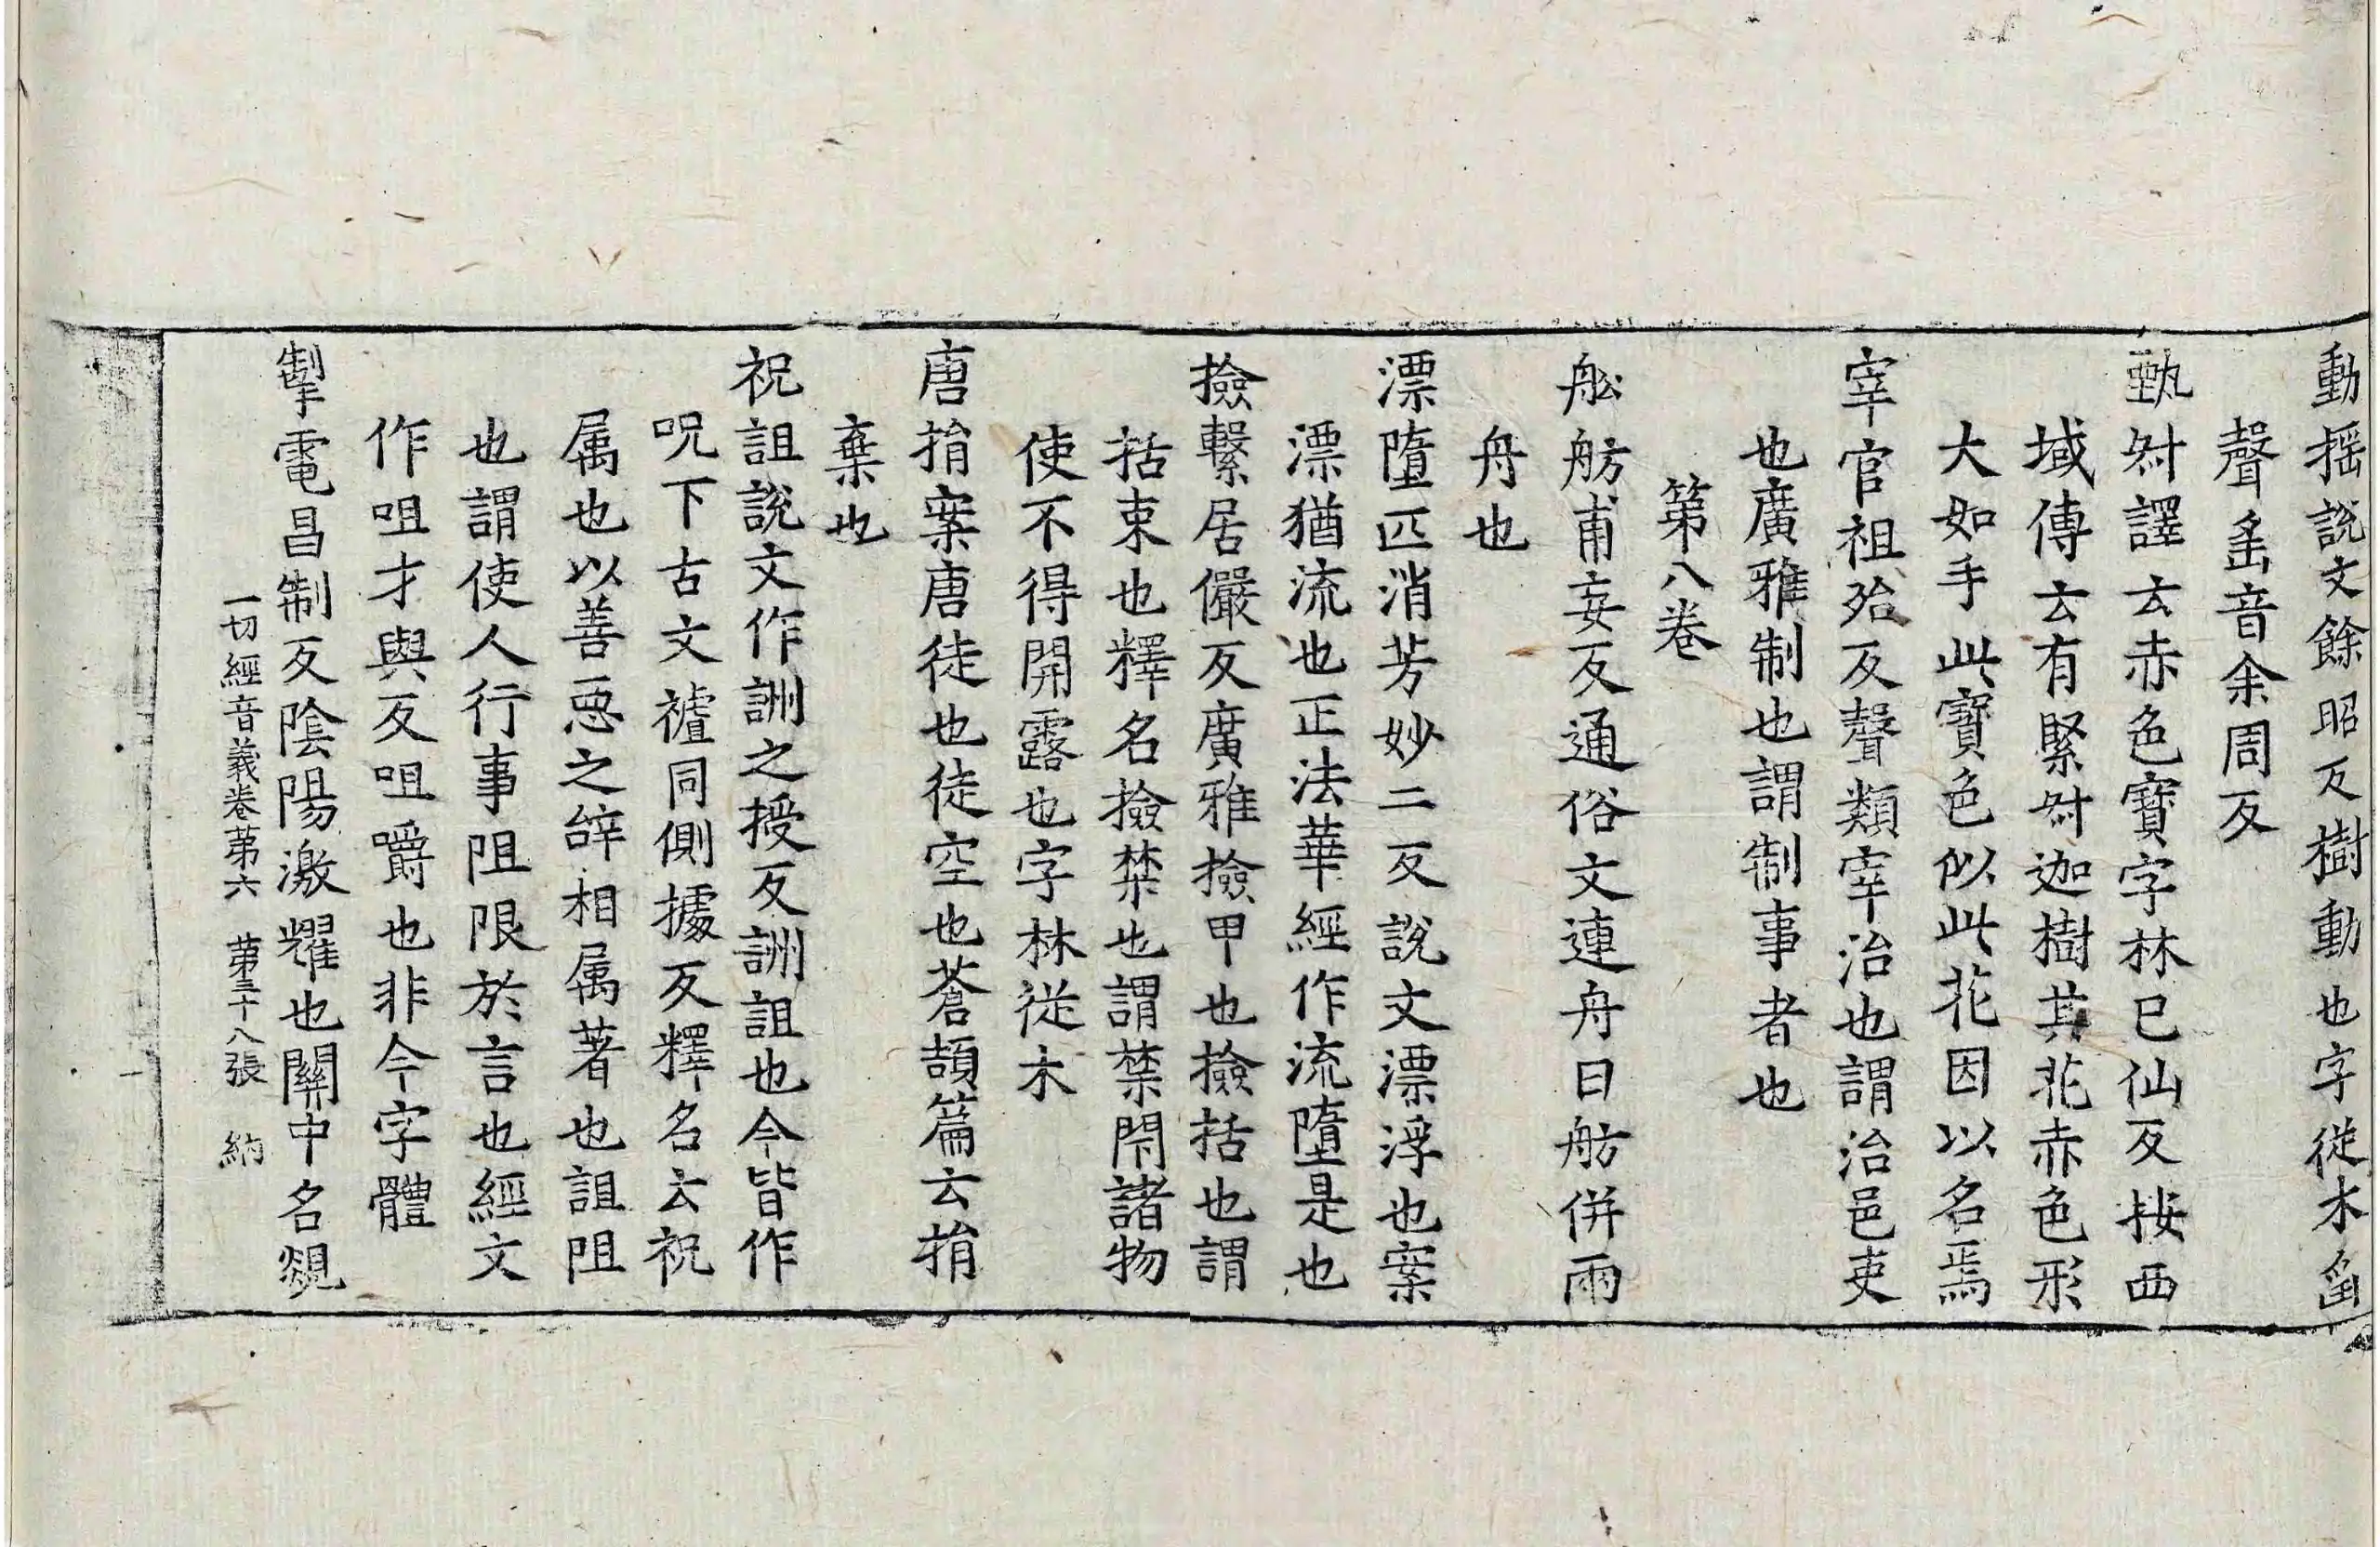 動揺說文餘昭反樹動也字従木䍃
聲䍃音余周反
甄叔譯云赤色寶字林巳仙反按西
域傳云有緊叔迦樹其花赤色形
大如手此寶色似此花因以名焉
宰官祖殆反聲類宰治也謂治邑吏
也廣雅制也謂制事者也
第八卷
舩舫甫妄反通俗文連舟曰舫併兩
舟也
漂墮匹消芳妙二反說文漂浮也案
漂猶流也正法華經作流墮是也
撿繋居儼反廣雅撿甲也撿括也謂
括束也釋名撿禁也謂禁閇諸物
使不得開露也字林従木
唐捐案唐徒也徒空也蒼頡篇云捐
棄也
祝詛說文作詶之授反詶詛也今皆作
呪下古文䄖同側據反釋名云祝
属也以善惡之辝相属著也詛阻
也謂使人行事阻限於言也經文
作咀才與反咀嚼也非今字體
掣電昌制反陰陽激耀也關中名覢
一切經音義卷苐六 苐三十八張 納